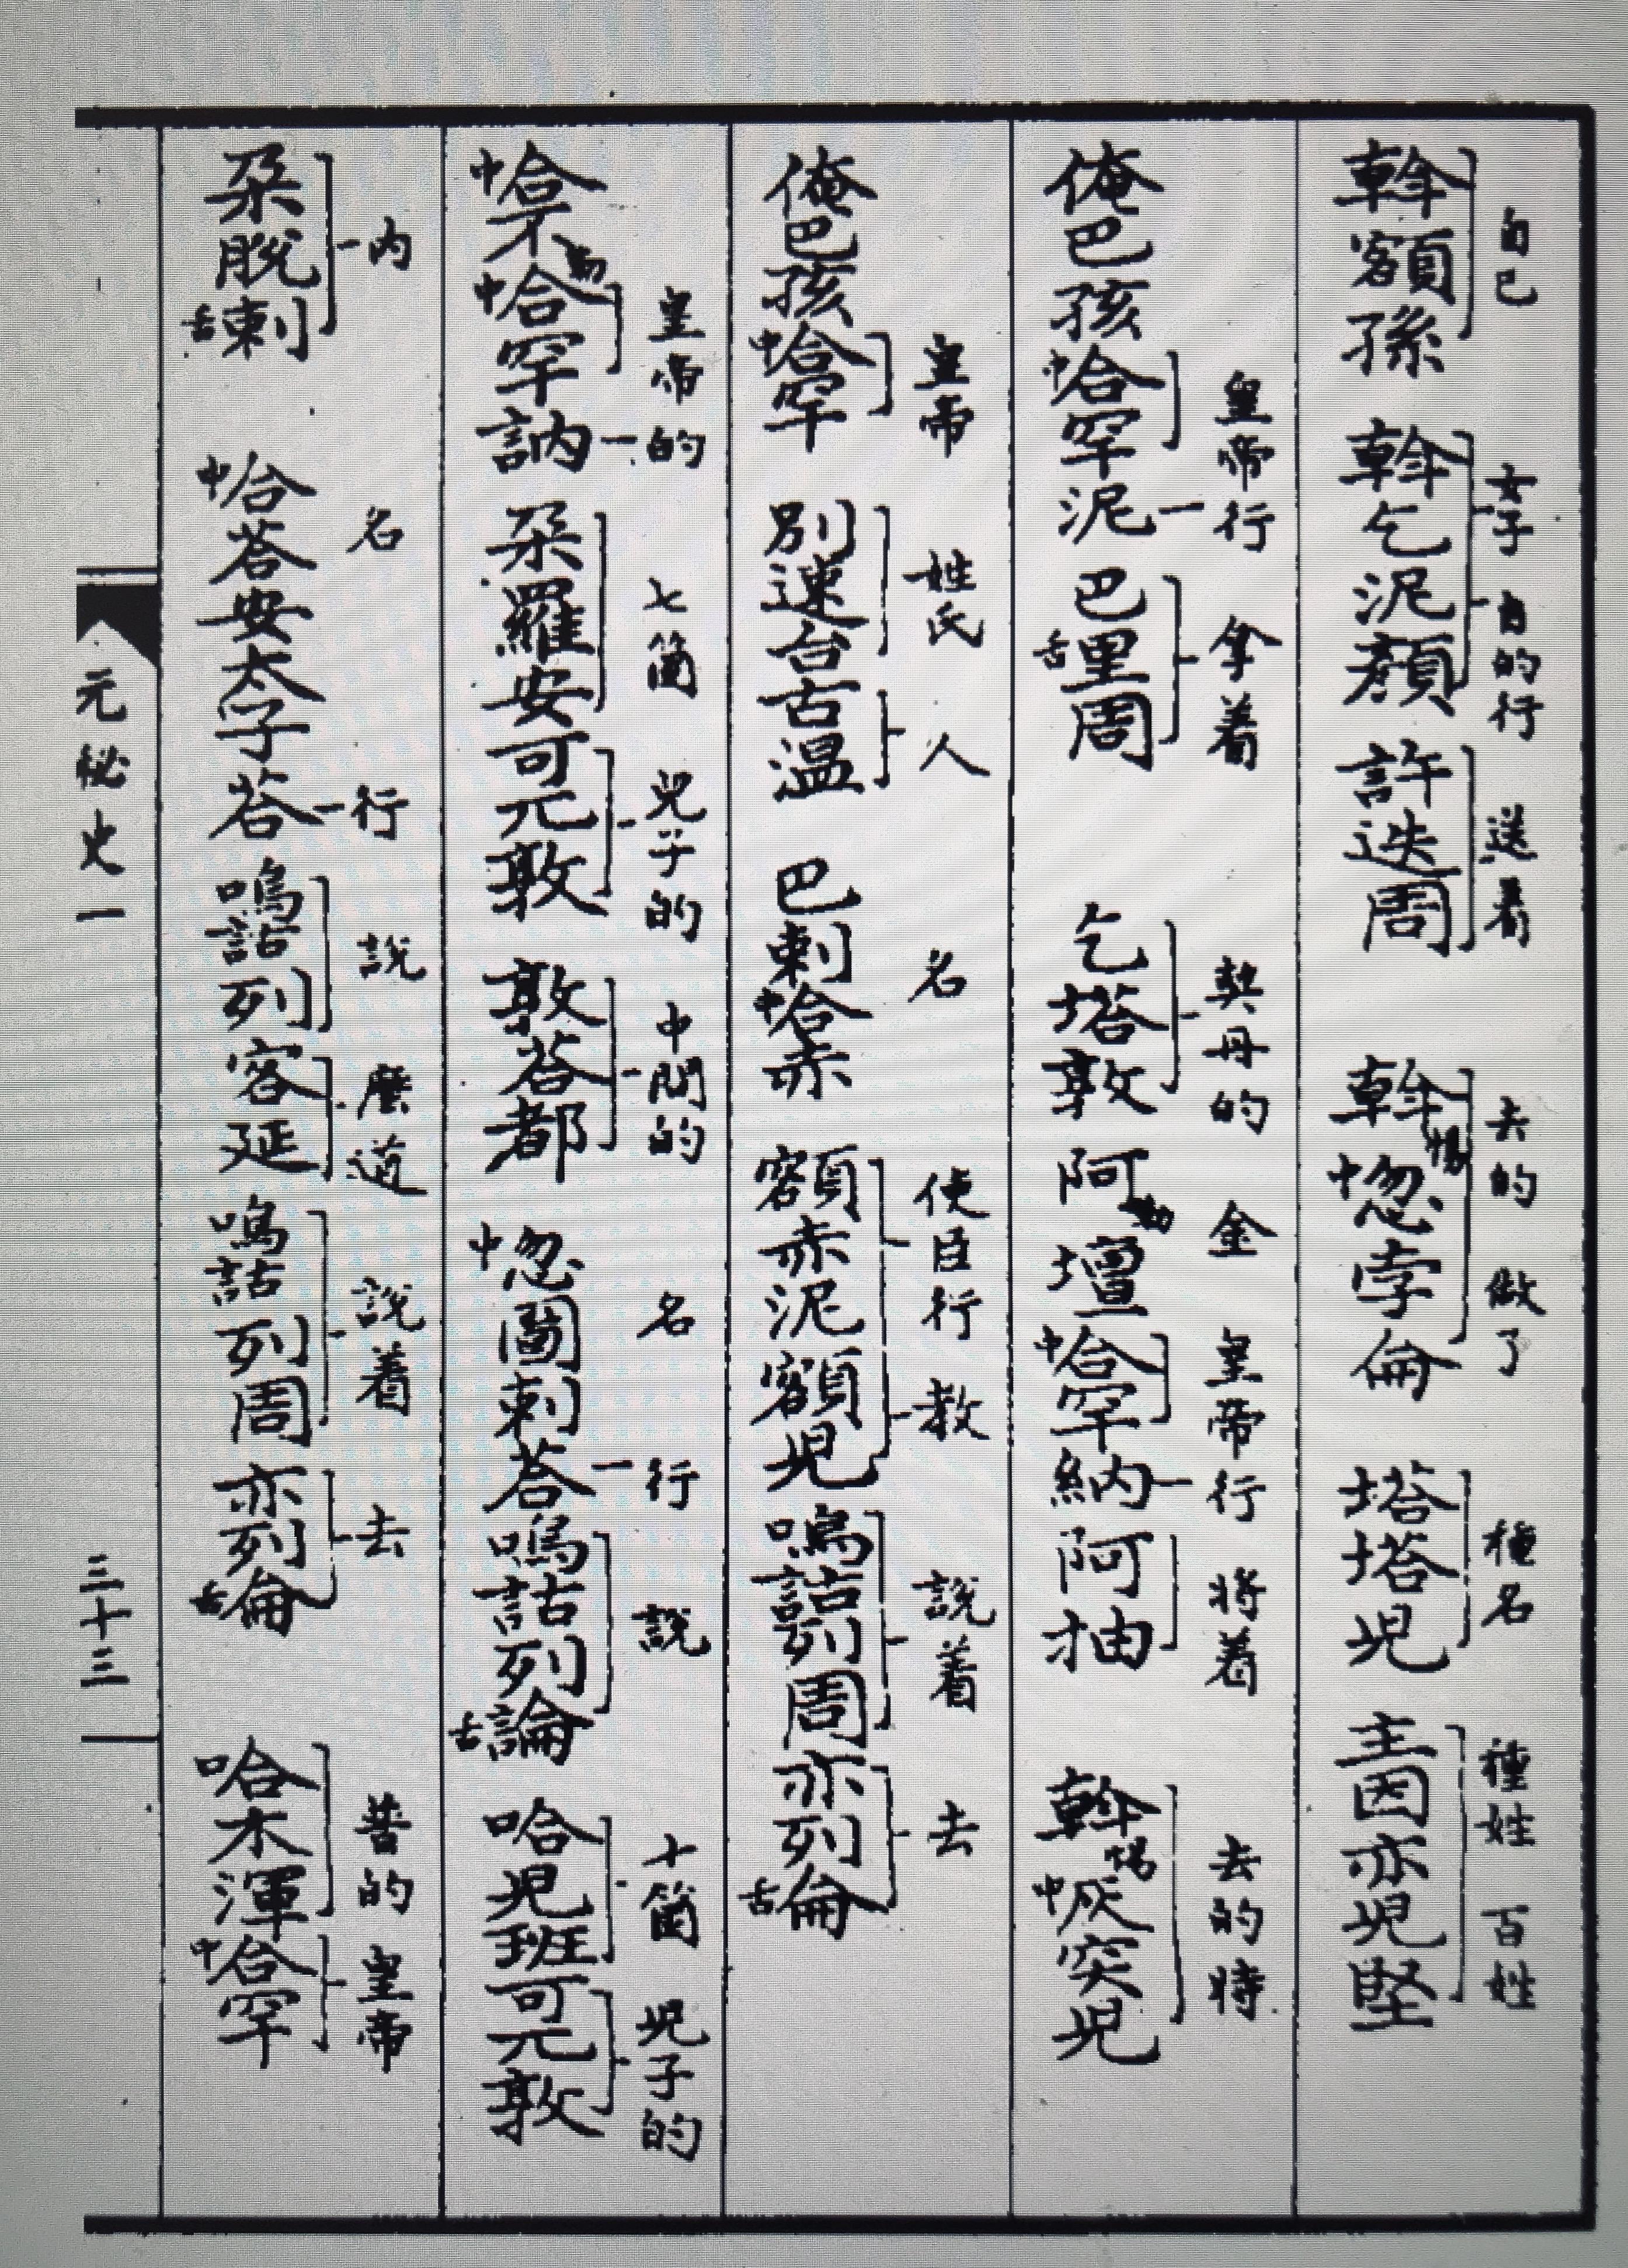 自己 女子 自的行 送着 去的 做了 種名 種姓 百姓
斡額孫 斡乞泥顏 許迭周 斡惕中忽孛侖 塔塔兒 主因亦兒堅
皇帝行 拿着 契丹的 金 皇帝行 將着 去的時
俺巴孩中合罕泥 巴舌里周 乞塔敦 阿勒壇中合罕納 阿抽 斡惕中灰突兒
皇帝 姓氏 人 名 使臣行 教 說着 去
俺巴孩中合罕 別速台古温 巴剌中合赤 額赤泥額兒 嗚詁列周 亦列舌侖
皇帝的 七箇 兒子的 中間的 名 行 說 十箇 兒子的
中合不勒中合罕訥 朶羅安可兀敦 敦荅都 中忽圖剌荅 嗚詁列舌論 哈兒班可兀敦
內 名 行 說 麽道 說着 去 普的 皇帝
朶脫舌剌 中合荅安太子荅 嗚詁列 客延 嗚詁列周 亦列舌侖 哈木渾中合罕
元秘史一 三十三